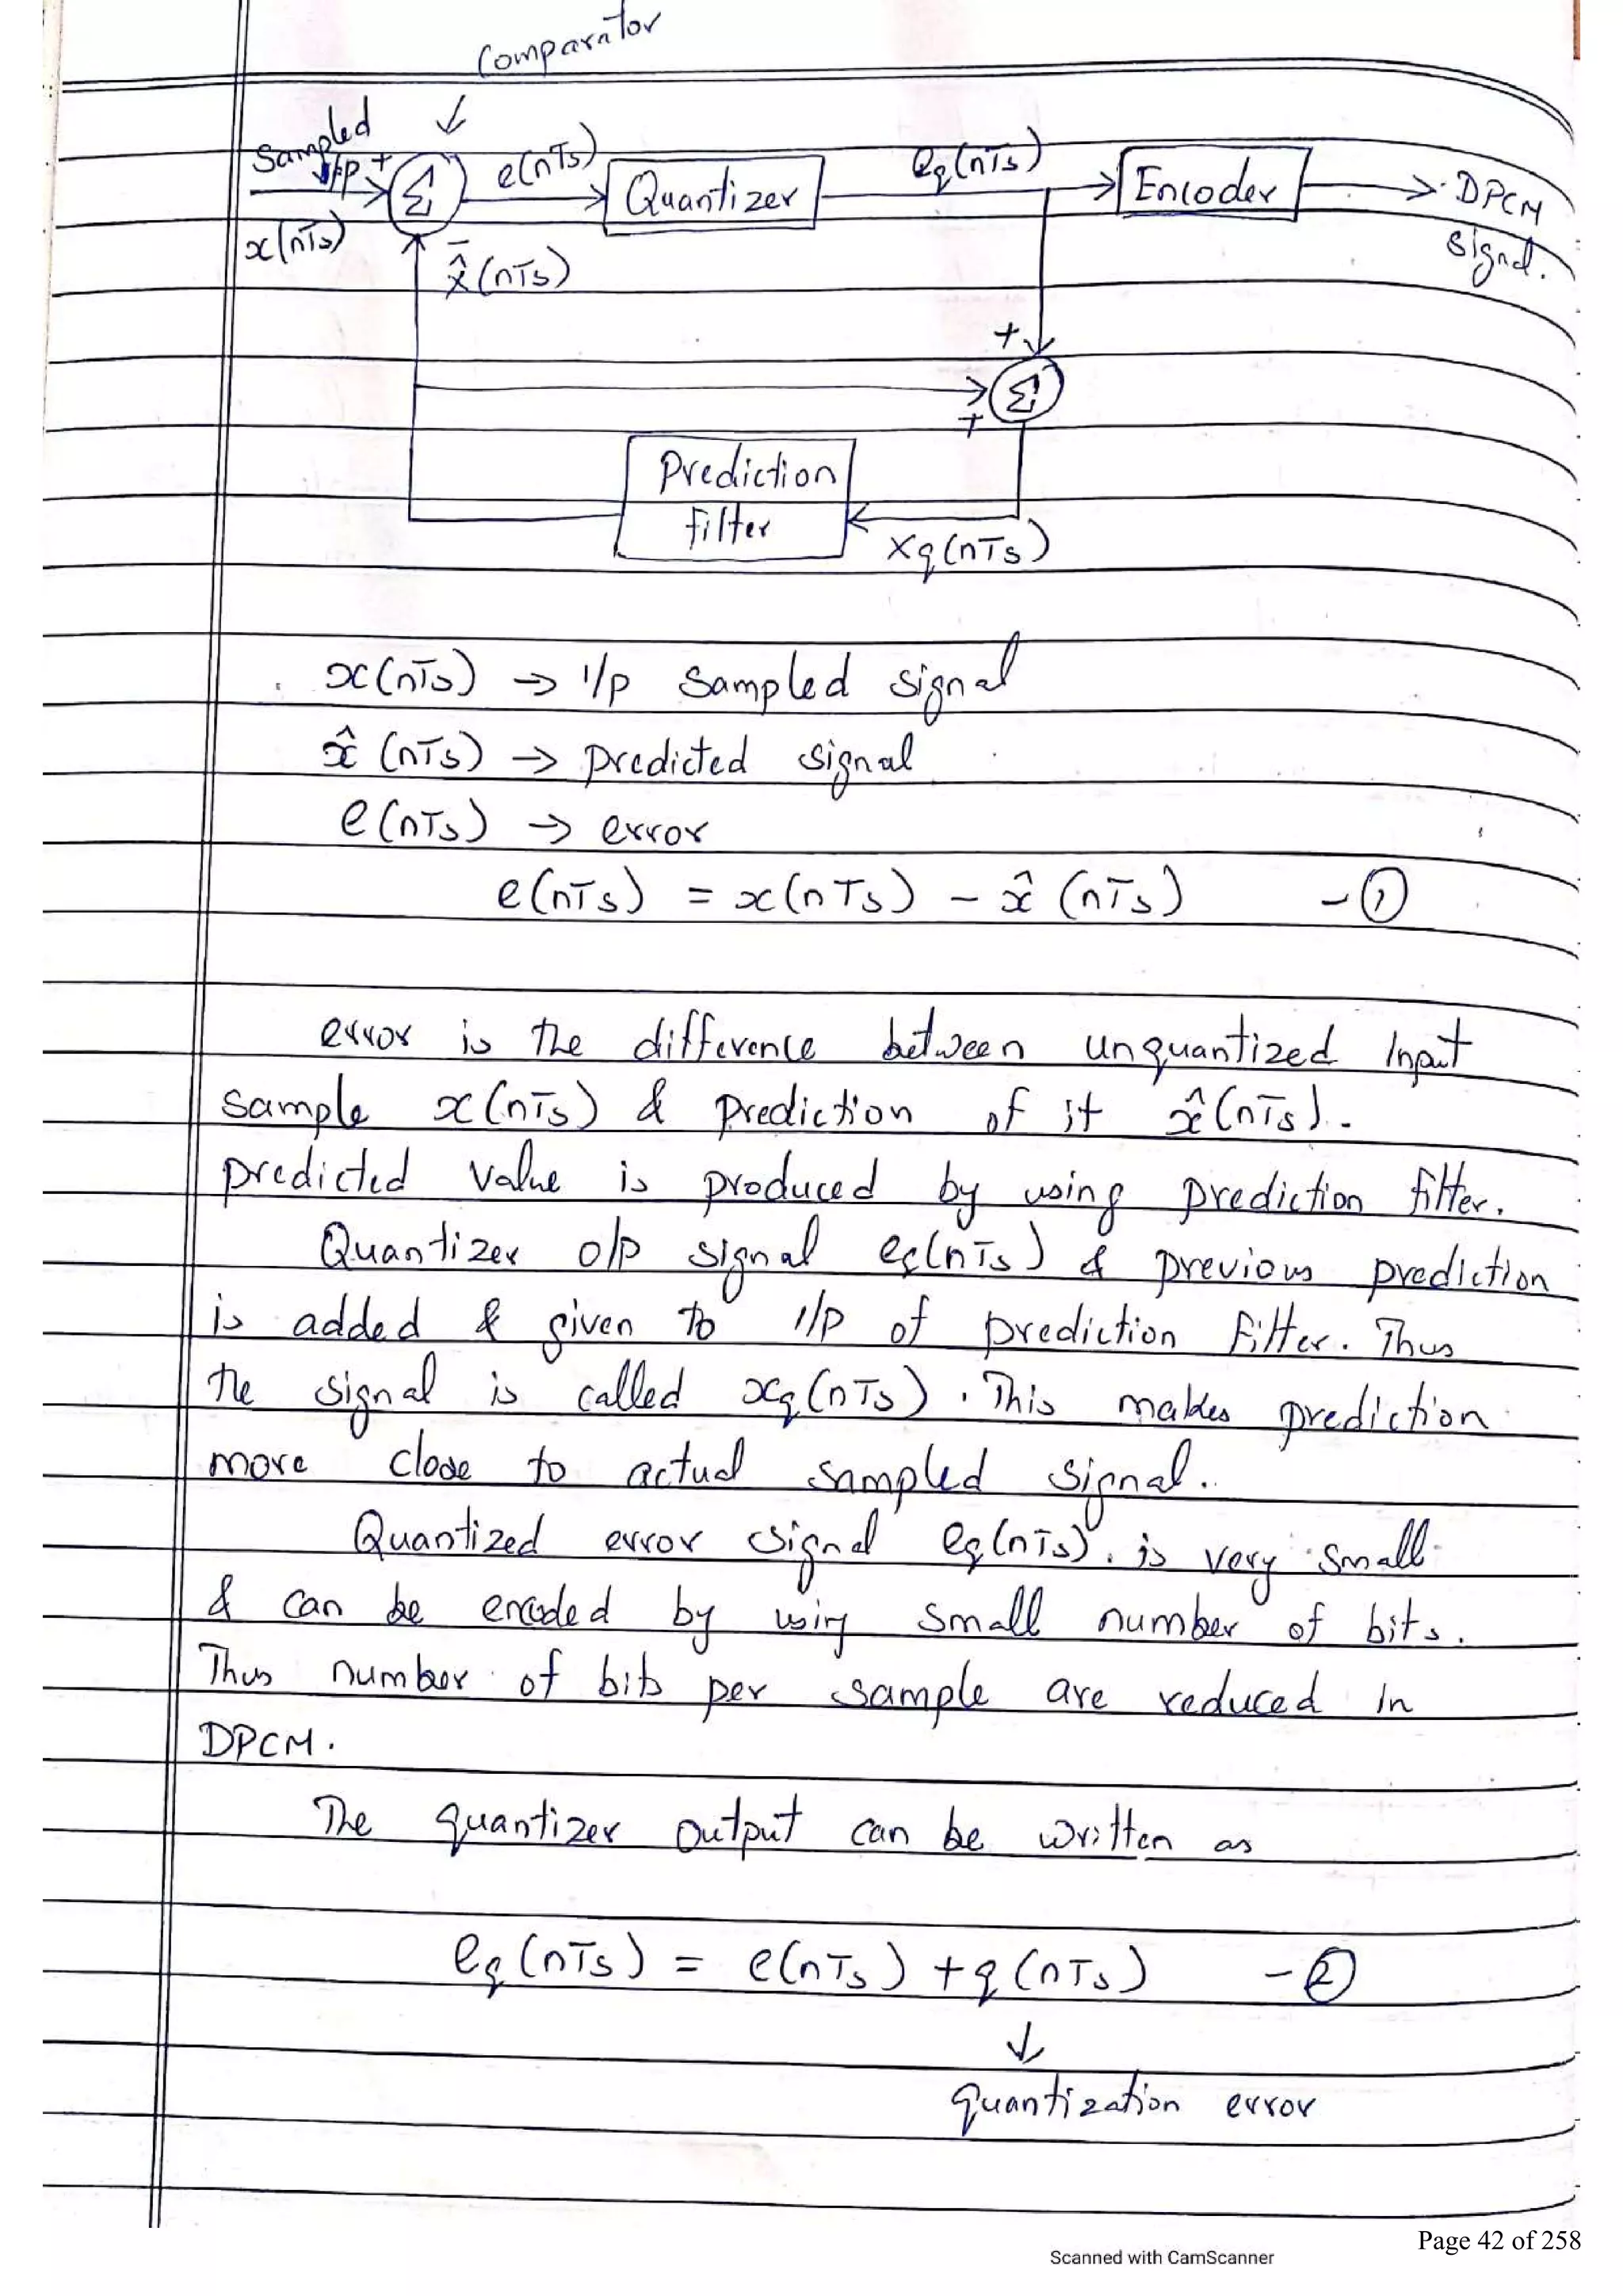 Comparator
Sampled
I/p +
e(nTs)
eq(nTs)
Σ
Quantizer
Encoder
DPCM
signal.
x(nTs)
-
x̂(nTs)
+
Σ
+
Prediction
filter
Xq(nTs)
x(nTs) → I/p Sampled signal
x̂(nTs) → predicted signal
e(nTs) → error
e(nTs) = x(nTs) - x̂(nTs) -①
error is the difference between unquantized Input
sample x(nTs) & prediction of it x̂(nTs).
predicted value is produced by using prediction filter.
Quantizer o/p signal eq(nTs) & previous prediction
is added & given to I/p of prediction filter. Thus
the signal is called xq(nTs). This makes prediction
more close to actual sampled signal.
Quantized error signal eq(nTs). is very small
& can be encoded by using small number of bits.
Thus number of bits per sample are reduced in
DPCM.
The quantizer output can be written as
eq(nTs) = e(nTs) + q(nTs) -②
↓
quantization error
Page 42 of 258
Scanned with CamScanner